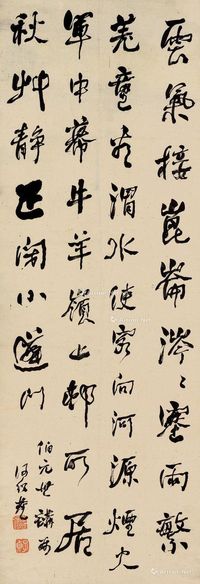 雲氣接崑崙涔〻塞雨繁
羌童看渭水使客向河源煙火
軍中幕牛羊嶺上邨所居
秋艸靜正閉小蓬門
伯元世講
何紹基